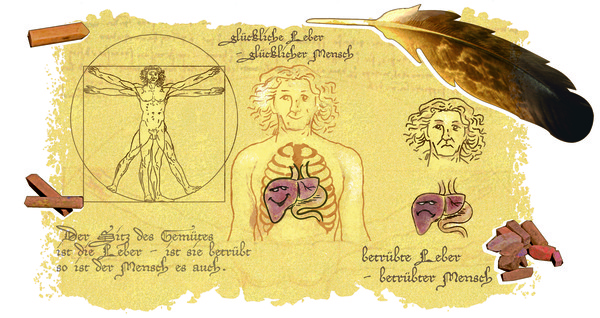 glückliche Leber
- glücklicher Mensch
Der Sitz des Gemütes
ist die Leber - ist sie betrübt
so ist der Mensch es auch.
betrübte Leber
- betrübter Mensch